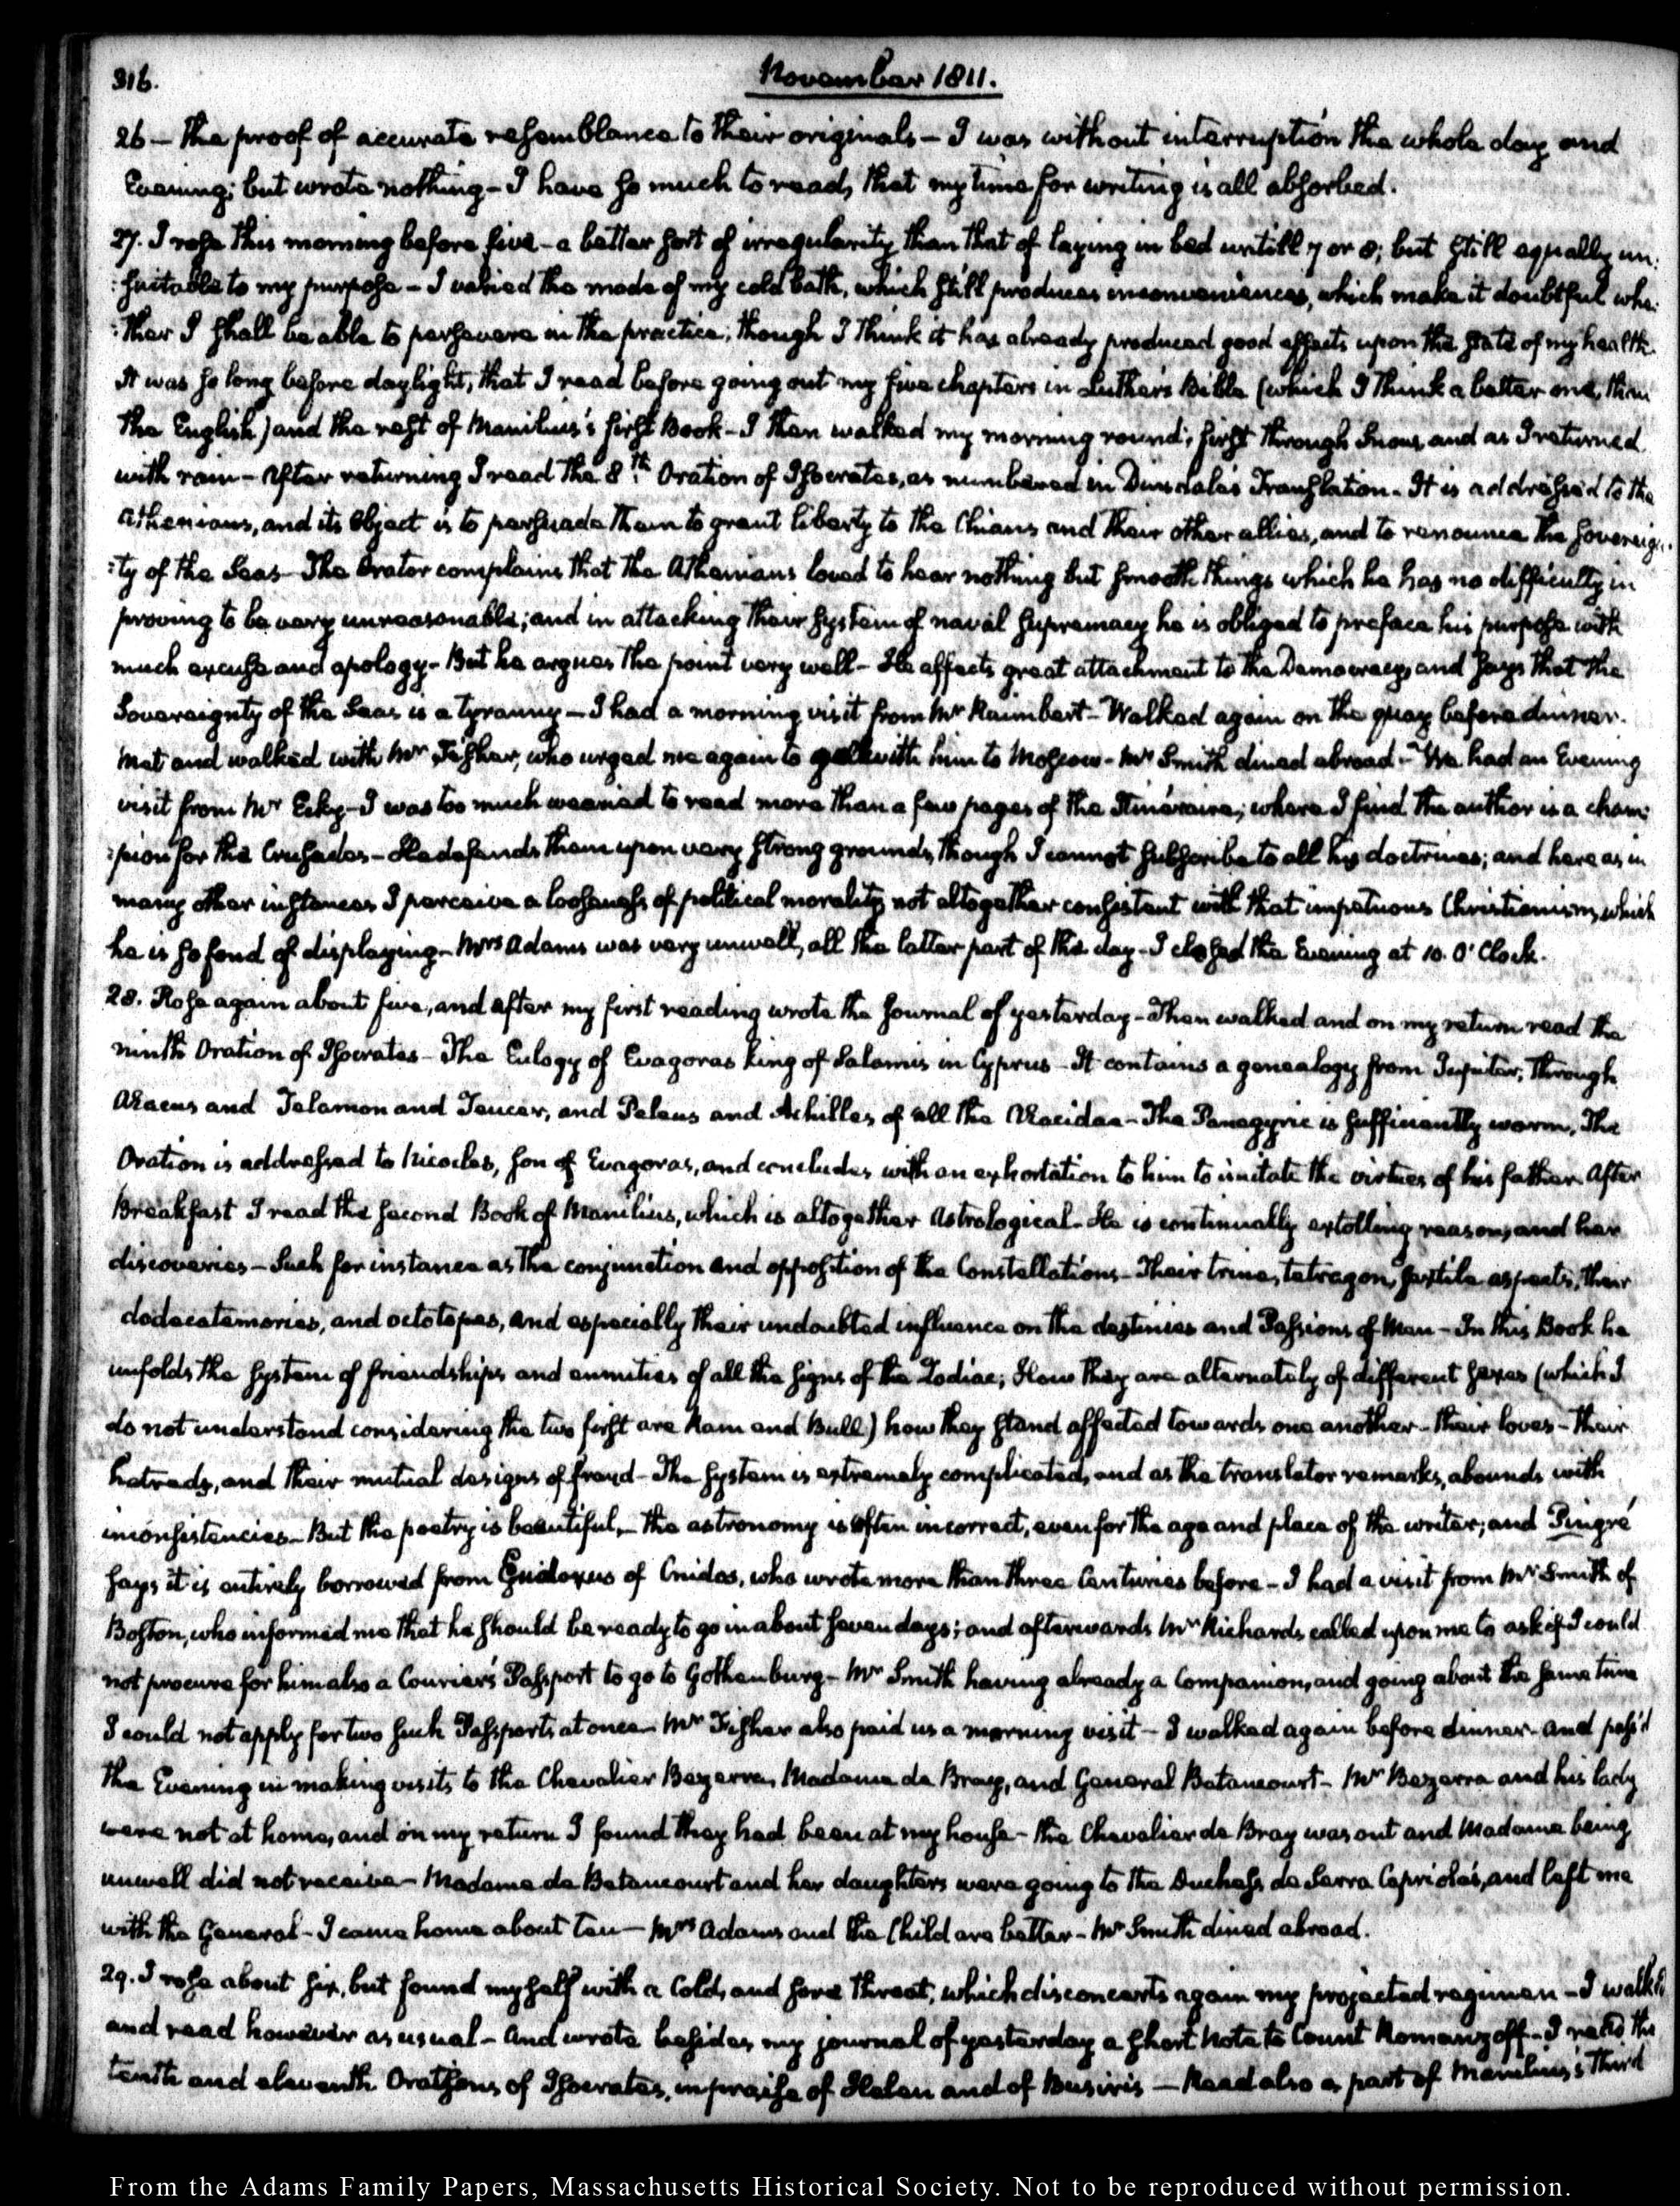 316.
November 1811.
26 – the proof of accurate resemblance to their originals – I was without interruption the whole day and
Evening; but wrote nothing – I have so much to read, that my time for writing is all absorbed.
27. I rose this morning before five – a better sort of irregularity than that of laying in bed untill 7 or 8; but still equally un:
:suitable to my purpose – I varied the mode of my cold bath, which still produces inconveniences, which make it doubtful whe:
:ther I shall be able to persevere in the practice; though I think it has already produced good effects upon the state of my health.
It was so long before daylight, that I read before going out my five chapters in Luther's Bible (which I think a better one, than
the English) and the rest of Manilius's first Book – I then walked my morning round; first through Snow, and as I returned
with rain – After returning I read the 8th. Oration of Isocrates, as numbered in Dinsdale's Translation – It is addressed to the
Athenians, and its object is to persuade them to grant liberty to the Chians and their other allies, and to renounce the Sovereign:
:ty of the Seas – The Orator complains that the Athenians loved to hear nothing but smooth things which he has no difficulty in
proving to be very unreasonable; and in attacking their system of naval supremacy he is obliged to preface his purpose with
much excuse and apology – But he argues the point very well – He affects great attachment to the Democracy, and says that the
Sovereignty of the Seas is a tyranny – I had a morning visit from Mr Raimbert – Walked again on the quay before dinner.
Met and walked with Mr Fisher, who urged me again to go with him to Moscow – Mr Smith dined abroad – We had an Evening
visit from Mr Eeky – I was too much wearied to read more than a few pages of the Itinéraire; where I find the author is a cham:
:pion for the Crusades – He defends them upon very strong grounds, though I cannot subscribe to all his doctrines; and here as in
many other instances I perceive a looseness of political morality, not altogether consistent with that impetuous Christianism, which
he is so fond of displaying – Mrs Adams was very unwell, all the latter part of the day – I closed the Evening at 10. O'Clock.
28. Rose again about five, and after my first reading wrote the journal of yesterday – Then walked and on my return read the
ninth Oration of Isocrates – The Eulogy of Evagoras King of Salamis in Cyprus – It contains a genealogy from Jupiter, through
Æacus and Telamon and Teucer, and Peleus and Achilles, of all the Æacidae – The Panegyric is sufficiently warm, The
Oration is addressed to Nicocles, son of Evagoras, and concludes with an exhortation to him to imitate the virtues of his father. After
Breakfast I read the second Book of Manilius, which is altogether Astrological – He is continually extolling reason, and her
discoveries – Such for instance as the conjunction and opposition of the Constellations – Their trine, tetragon, sextile aspects, their
dodecatemories, and octotopes, and especially their undoubted influence on the destinies and Passions of Men – In this Book he
unfolds the system of friendships and enmities of all the signs of the Zodiac; How they are alternately of different sexes (which I
do not understand considering the two first are Ram and Bull) how they stand affected towards one another – their loves – their
hatreds, and their mutual designs of fraud – The system is extremely complicated, and as the translator remarks, abounds with
inconsistencies – But the poetry is beautiful, – the astronomy is often incorrect, even for the age and place of the writer; and Pingré
says it is entirely borrowed from Eudoxus of Cnidos, who wrote more than three Centuries before – I had a visit from Mr Smith of
Boston, who informed me that he should be ready to go in about seven days; and afterwards Mr Richards called upon me to ask if I could
not procure for him also a Courier's Passport to go to Gothenburg – Mr Smith having already a Companion, and going about the same time
I could not apply for two such Passports at once – Mr Fisher also paid us a morning visit – I walked again before dinner – and pass'd
the Evening in making visits to the Chevalier Bezerra, Madame de Bray, and General Betancourt – Mr Bezerra and his lady
were not at home, and on my return I found they had been at my house – the Chevalier de Bray was out and Madame being
unwell did not receive – Madame de Betancourt and her daughters were going to the Duchess de Serra Capriola's, and left me
with the General – I came home about ten – Mrs Adams and the Child are better – Mr Smith dined abroad.
29. I rose about six, but found myself with a Cold, and sore throat, which disconcerts again my projected regimen – I walk'd
and read however as usual – And wrote besides my journal of yesterday a short Note to Count Romanzoff – I read the
tenth and eleventh Orations of Isocrates, in praise of Helen and of Busiris – Read also a part of Manilius's third
From the Adams Family Papers, Massachusetts Historical Society. Not to be reproduced without permission.